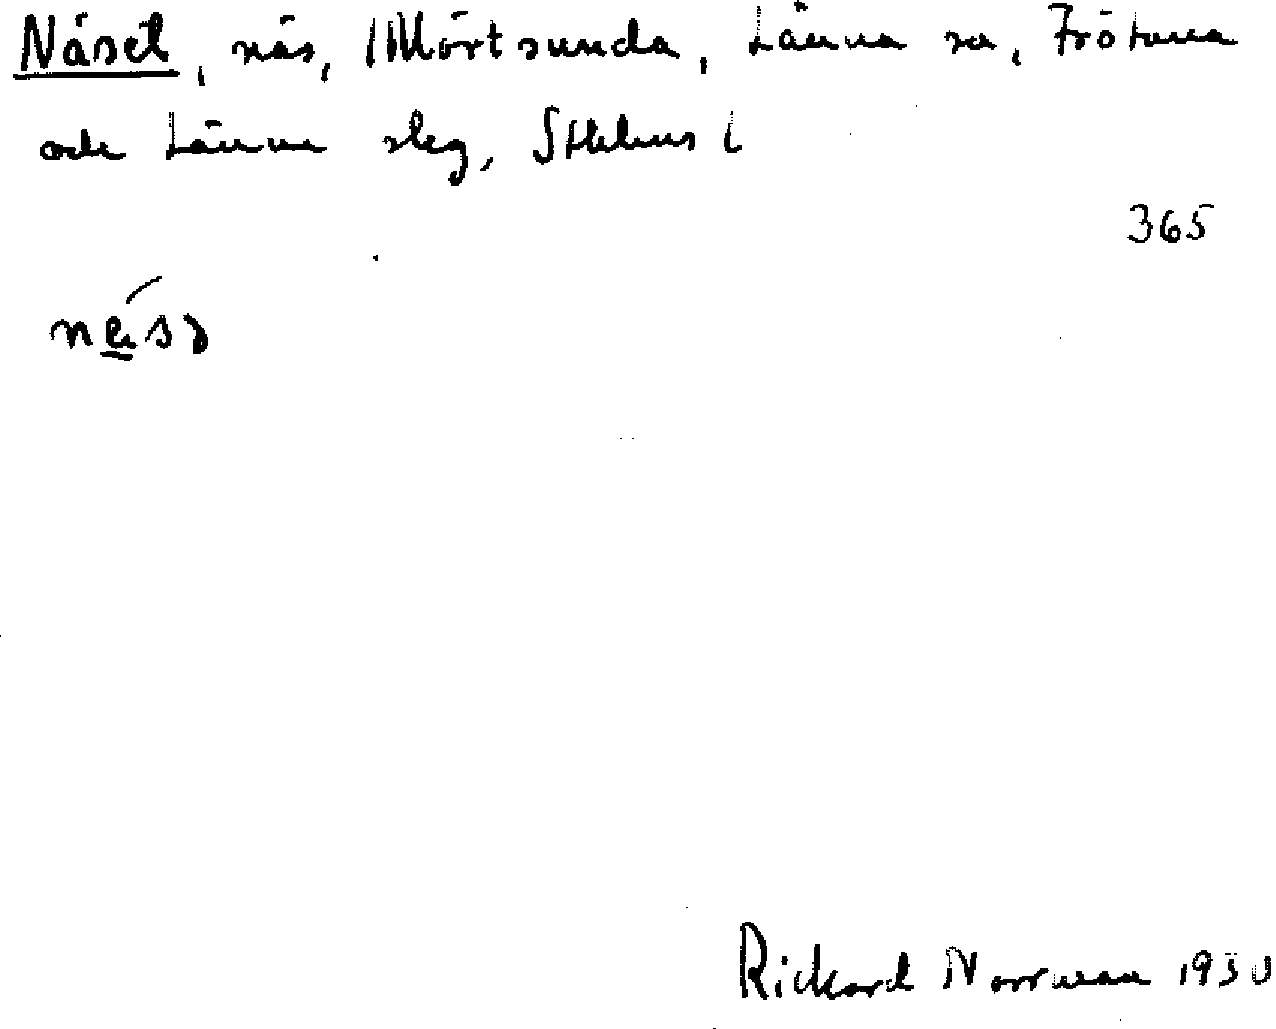 Näset, näs, Mörtsunda, Länna sn, Frötuna
och Länna slg, Sthlms l
365
Rickard Norrman 1930